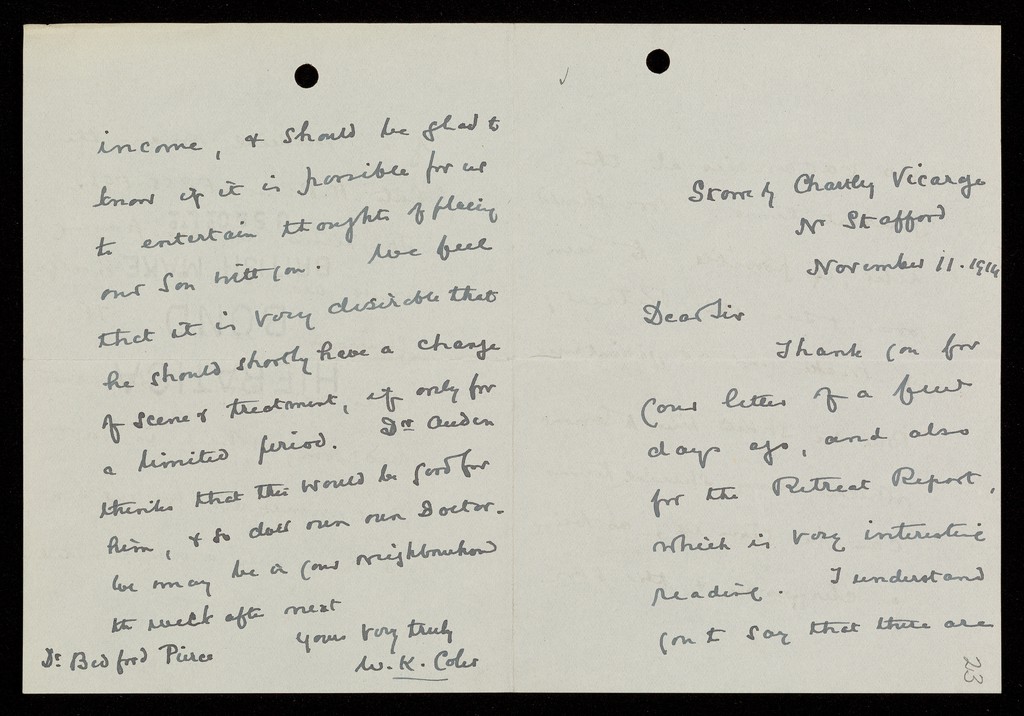 Stowe by Chartley Vicarage
Nr Stafford
November 11. 1914
Dear Sir
Thank you for
your letter of a few
days ago, and also
for the Retreat Report,
which is very interesting
reading. I understand
you to say that there are
23
income, & should be glad to
know if it is possible for us
to entertain thoughts of placing
our Son with you. We feel
that it is very desirable that
he should shortly have a change
of scene & treatment, if only for
a limited period. Dr Auden
thinks that this would be good for
him, & so does our own Doctor.
We may be in your neighbourhood
the week after next
Yours very truly
W. K. Coles
Dr Bedford Pierce